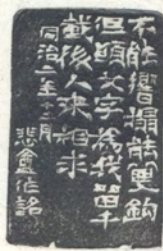 不能響搨能雙鈎
但願文字為我畱千
載後人來相求
同治二年十二月 悲盦作銘